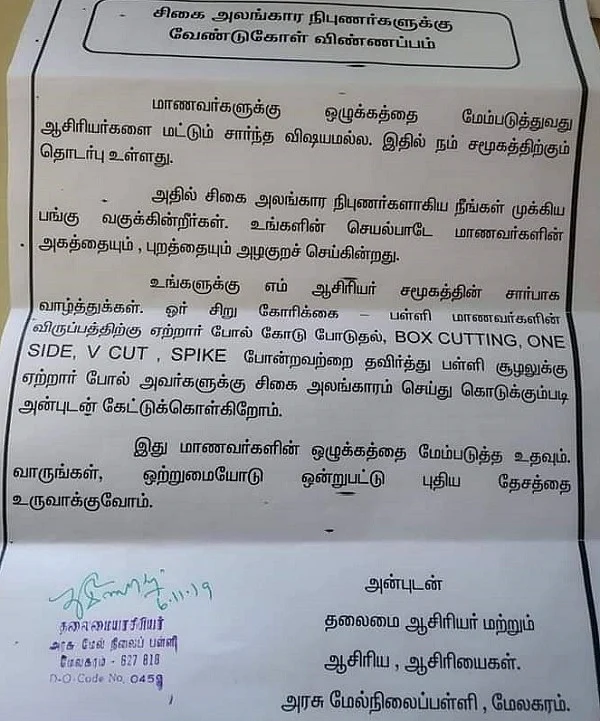 சிகை அலங்கார நிபுணர்களுக்கு
வேண்டுகோள் விண்ணப்பம்
மாணவர்களுக்கு ஒழுக்கத்தை மேம்படுத்துவது
ஆசிரியர்களை மட்டும் சார்ந்த விஷயமல்ல. இதில் நம் சமூகத்திற்கும்
தொடர்பு உள்ளது.
அதில் சிகை அலங்கார நிபுணர்களாகிய நீங்கள் முக்கிய
பங்கு வகுக்கின்றீர்கள். உங்களின் செயல்பாடே மாணவர்களின்
அகத்தையும் , புறத்தையும் அழகுறச் செய்கின்றது.
உங்களுக்கு எம் ஆசிரியர் சமூகத்தின் சார்பாக
வாழ்த்துக்கள். ஓர் சிறு கோரிக்கை – பள்ளி மாணவர்களின்
விருப்பத்திற்கு ஏற்றார் போல் கோடு போடுதல், BOX CUTTING, ONE
SIDE, V CUT , SPIKE போன்றவற்றை தவிர்த்து பள்ளி சூழலுக்கு
ஏற்றார் போல் அவர்களுக்கு சிகை அலங்காரம் செய்து கொடுக்கும்படி
அன்புடன் கேட்டுக்கொள்கிறோம்.
இது மாணவர்களின் ஒழுக்கத்தை மேம்படுத்த உதவும்.
வாருங்கள், ஒற்றுமையோடு ஒன்றுபட்டு புதிய தேசத்தை
உருவாக்குவோம்.
6.11.19
தலைமையாசிரியர்
அரசு மேல் நிலைப் பள்ளி
மேலகரம் - 627 818
D-O-Code No. 0459
அன்புடன்
தலைமை ஆசிரியர் மற்றும்
ஆசிரிய , ஆசிரியைகள்.
அரசு மேல்நிலைப்பள்ளி , மேலகரம்.